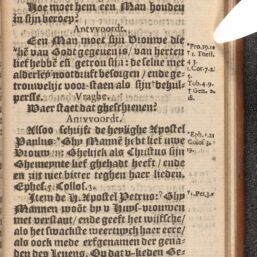 Hoe moet hem een Man houden
in sijn beroep?
Antvvoort.
Een Man moet sijn Vrouwe die
hē van God gegeven is, van herten
lief hebbē eñ getrou sijn: de selve met
alderley nootdruft besorgen, ende ge-
trouwelijc voor-staen als sijn behul-
persse.
Vraghe.
Waer staet dat gheschreven?
Antvvoordt.
Alsoo schrijft de heylighe Apostel
Paulus: Ghy Mannē hebt lief uwe
Vrouwen: Ghelijck als Christus sijn
Ghemeynte lief ghehadt heeft / ende
en zijt niet bitter teghen haer lieden.
Ephes. 5. Collos. 3.
Item de H. Apostel Petrus: Ghy
Mannen wootbt by u Huys-vrouwen
met verstant / ende geeft het wijfsche,
als het swackste weertuych haer eere,
als oock mede erfgenamen der gena-
den des Levens, Op dat v-lieden Ge-
Pro. 19.14
1. Thess.
4 3.
1. Cor. 7.2.
Tob. 4.9.
Ephe. 5.21
1. Pet. 3.